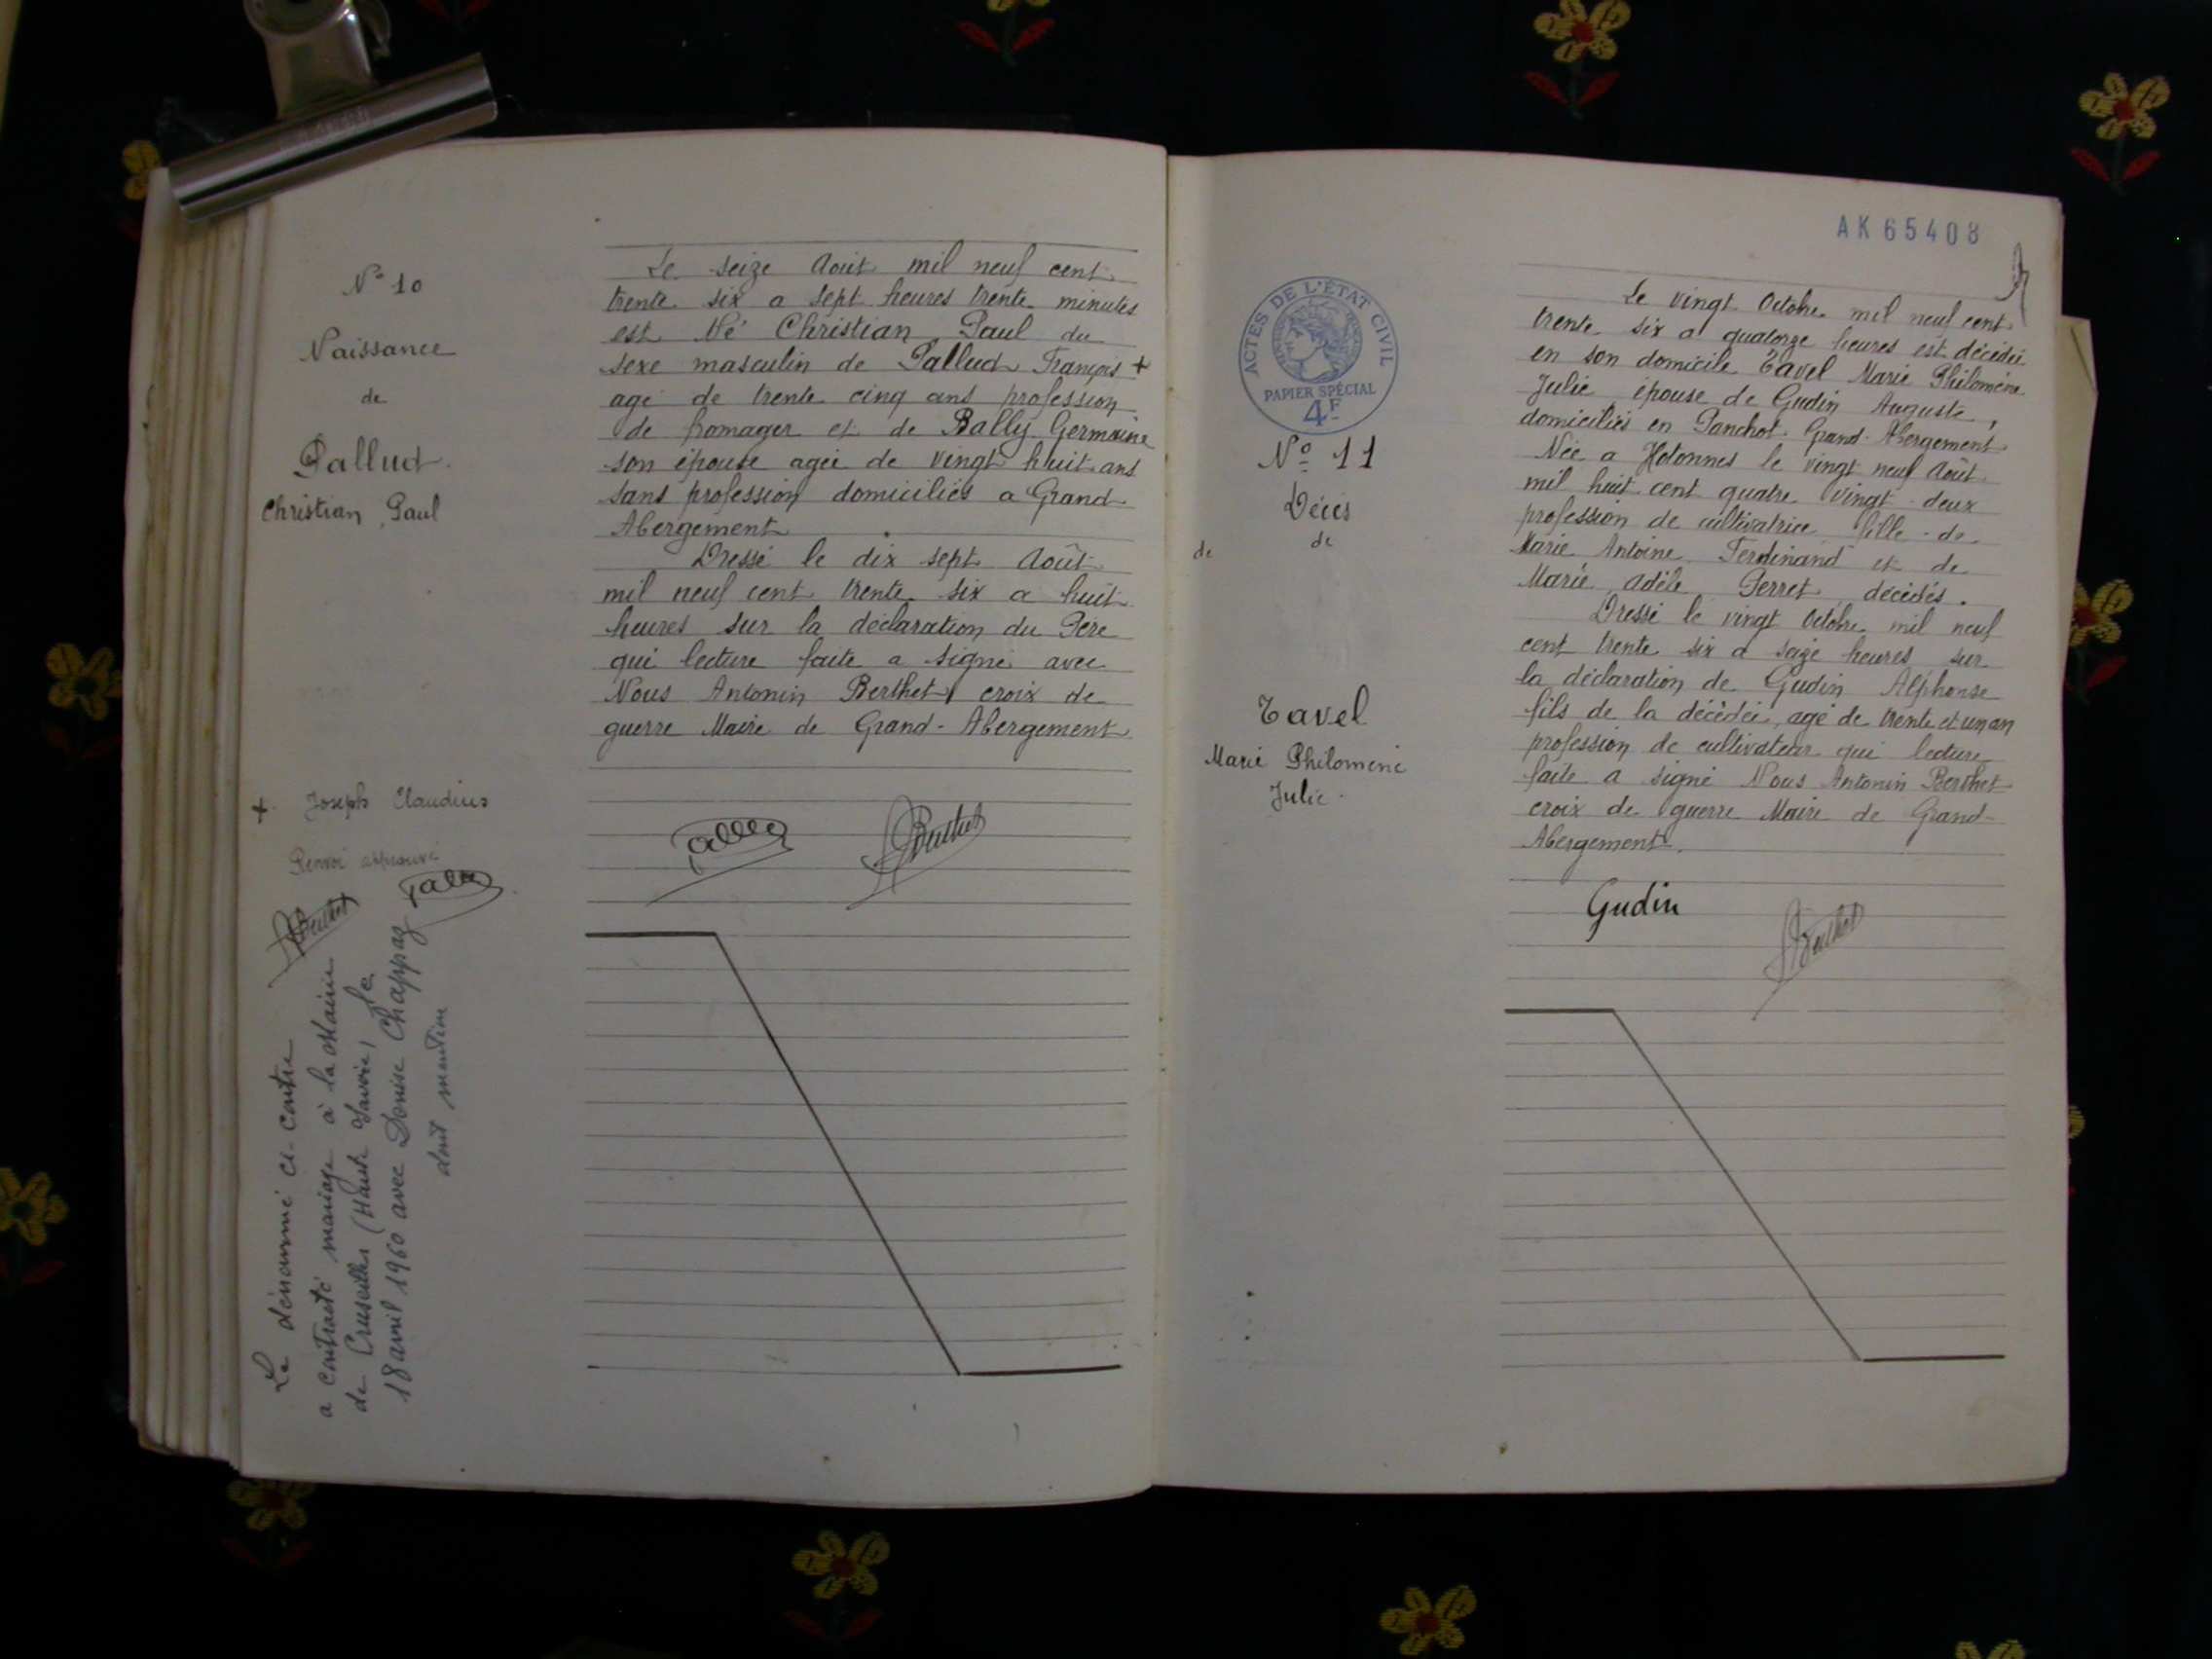 N° 10
Naissance
de
Pallud
Christian, Paul
Le seize Août mil neuf cent
trente six a sept heures trente minutes
est Né Christian Paul du
sexe masculin de Pallud François +
agé de trente cinq ans profession
de fromager et de Bally Germaine
son épouse agée de vingt huit ans
sans profession domiciliés a Grand
Abergement
Dressé le dix sept Août
mil neuf cent trente six a huit
heures sur la déclaration du Père
qui lecture faite a signé avec
Nous Antonin Berthet croix de
guerre Maire de Grand-Abergement
+ Joseph Claudius
Renvoi approuvé
Le dénommé ci-contre
a contracté mariage à la Mairie
de Cruseilles (Haute Savoie) le
18 avril 1960 avec Denise Chappaz
dont mention
AK 65408
ACTES DE L'ÉTAT CIVIL
PAPIER SPÉCIAL
4F
N° 11
Décès
de
de
Tavel
Marie Philomene
Julie
Le vingt Octobre mil neuf cent
trente six a quatorze heures est décédée
en son domicile Tavel Marie Philomène
Julie épouse de Gudin Auguste,
domiciliés en Panchot Grand-Abergement
Née a Hotonnes le vingt neuf Août
mil huit cent quatre vingt deux
profession de cultivatrice fille de
Marie Antoine Ferdinand et de
Marie Adèle Perret décédés.
Dressé le vingt Octobre mil neuf
cent trente six a seize heures sur
la déclaration de Gudin Alphonse
fils de la décédée, agé de trente et un an
profession de cultivateur qui lecture
faite a signé Nous Antonin Berthet
croix de guerre Maire de Grand-
Abergement.
Gudin